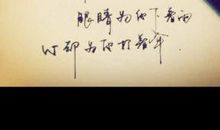 眼睛为她下着雨
心却为她打着伞